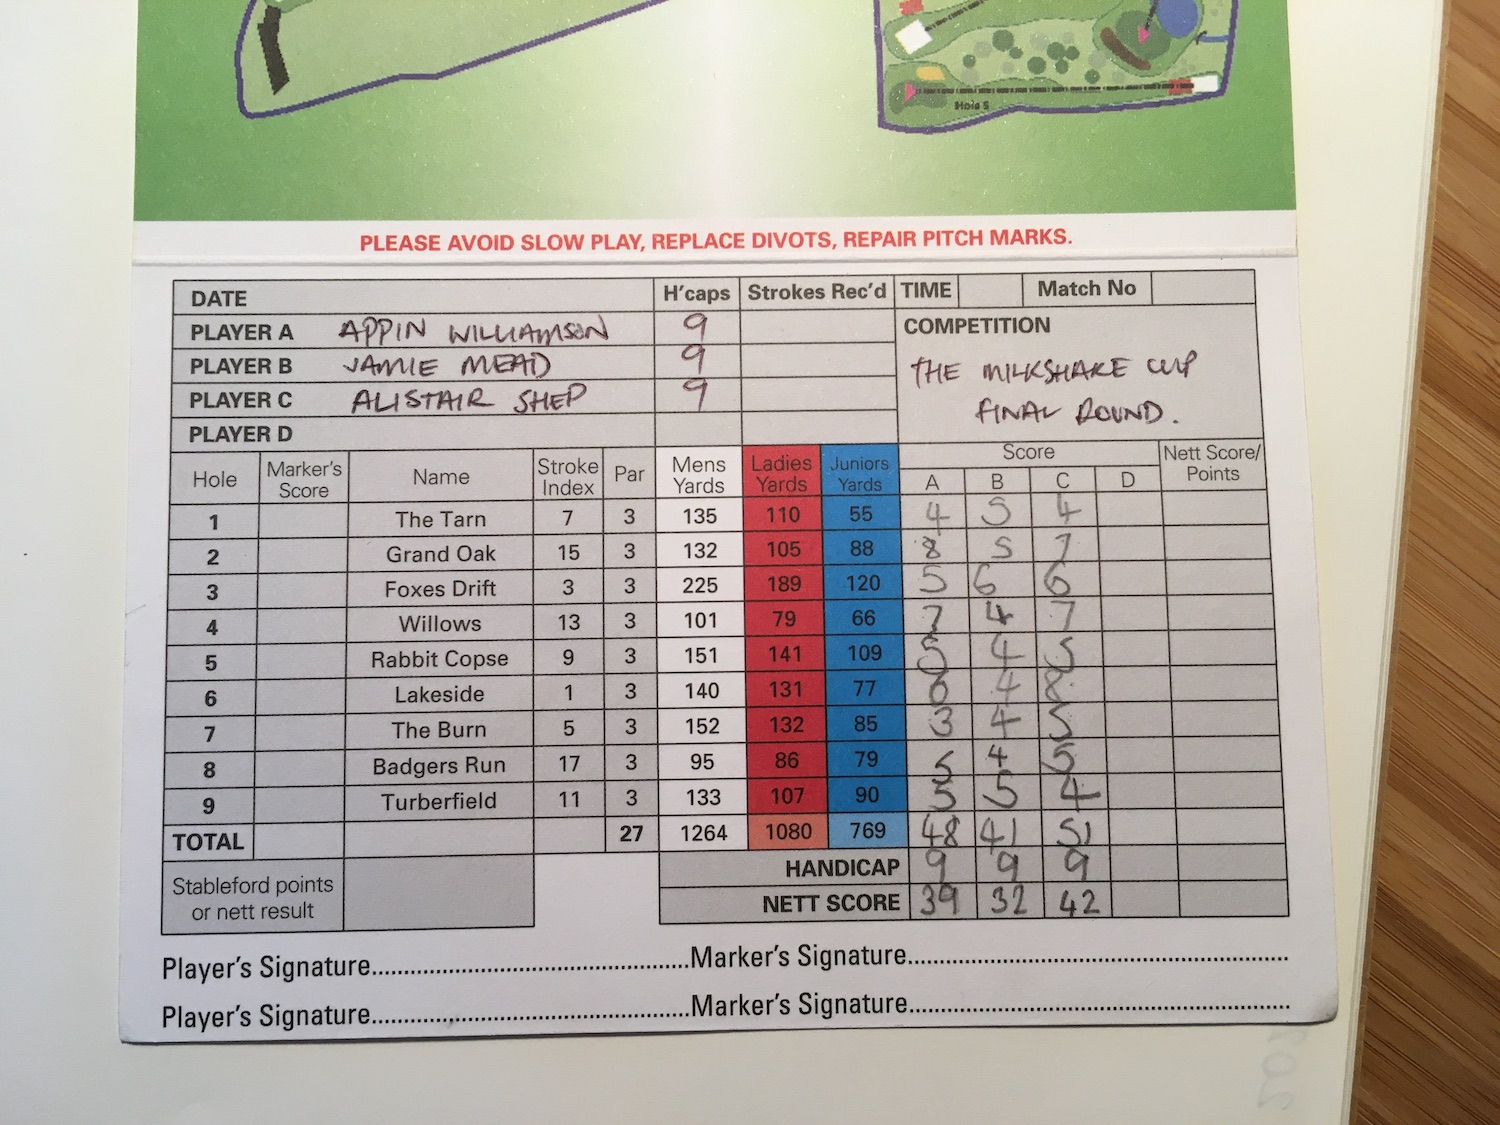 Hole 5
PLEASE AVOID SLOW PLAY, REPLACE DIVOTS, REPAIR PITCH MARKS.
DATE H'caps Strokes Rec'd TIME Match No
PLAYER A APPIN WILLIAMSON 9 COMPETITION
PLAYER B JAMIE MEAD 9 THE MILKSHAKE CUP
PLAYER C ALISTAIR SHEP 9 FINAL ROUND.
PLAYER D
Hole Marker's Score Name Stroke Index Par Mens Yards Ladies Yards Juniors Yards Score A B C D Nett Score/ Points
1 The Tarn 7 3 135 110 55 4 5 4
2 Grand Oak 15 3 132 105 88 8 5 7
3 Foxes Drift 3 3 225 189 120 5 6 6
4 Willows 13 3 101 79 66 7 4 7
5 Rabbit Copse 9 3 151 141 109 5 4 5
6 Lakeside 1 3 140 131 77 4 8
7 The Burn 5 3 152 132 85 3 4 5
8 Badgers Run 17 3 95 86 79 5 4 5
9 Turberfield 11 3 133 107 90 5 5 4
TOTAL 27 1264 1080 769 48 41 51
HANDICAP 9 9 9
Stableford points or nett result NETT SCORE 39 32 42
Player's Signature Marker's Signature
Player's Signature Marker's Signature